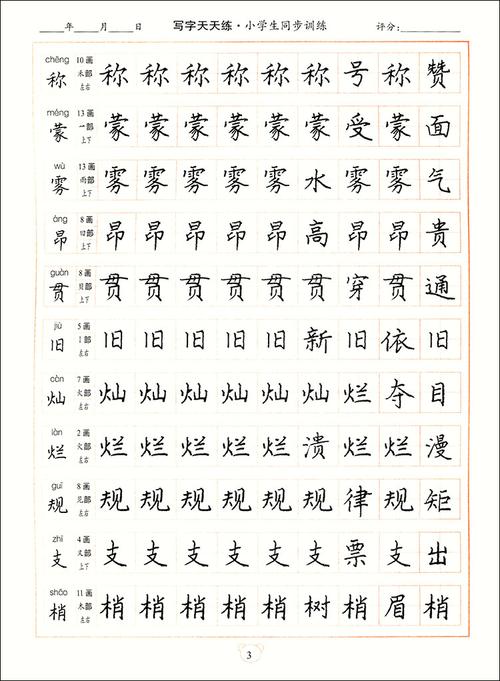 ____年____月____日 写字天天练·小学生同步训练 评分:________
chēng 10画
称 禾部 称 称 称 称 称 称 号 称 赞
左右
méng 13画
蒙 艹部 蒙 蒙 蒙 蒙 蒙 蒙 受 蒙 面
上下
wù 13画
雾 雨部 雾 雾 雾 雾 雾 水 雾 雾 气
上下
áng 8画
昂 日部 昂 昂 昂 昂 昂 高 昂 昂 贵
上下
guàn 8画
贯 贝部 贯 贯 贯 贯 贯 贯 穿 贯 通
上下
jiù 5画
旧 丨部 旧 旧 旧 旧 旧 新 旧 依 旧
左右
càn 7画
灿 火部 灿 灿 灿 灿 灿 灿 烂 夺 目
左右
làn 2画
烂 火部 烂 烂 烂 烂 烂 溃 烂 烂 漫
左右
guī 8画
规 见部 规 规 规 规 规 规 律 规 矩
左右
zhī 4画
支 又部 支 支 支 支 支 支 票 支 出
上下
shāo 11画
梢 木部 梢 梢 梢 梢 梢 树 梢 眉 梢
左右
3